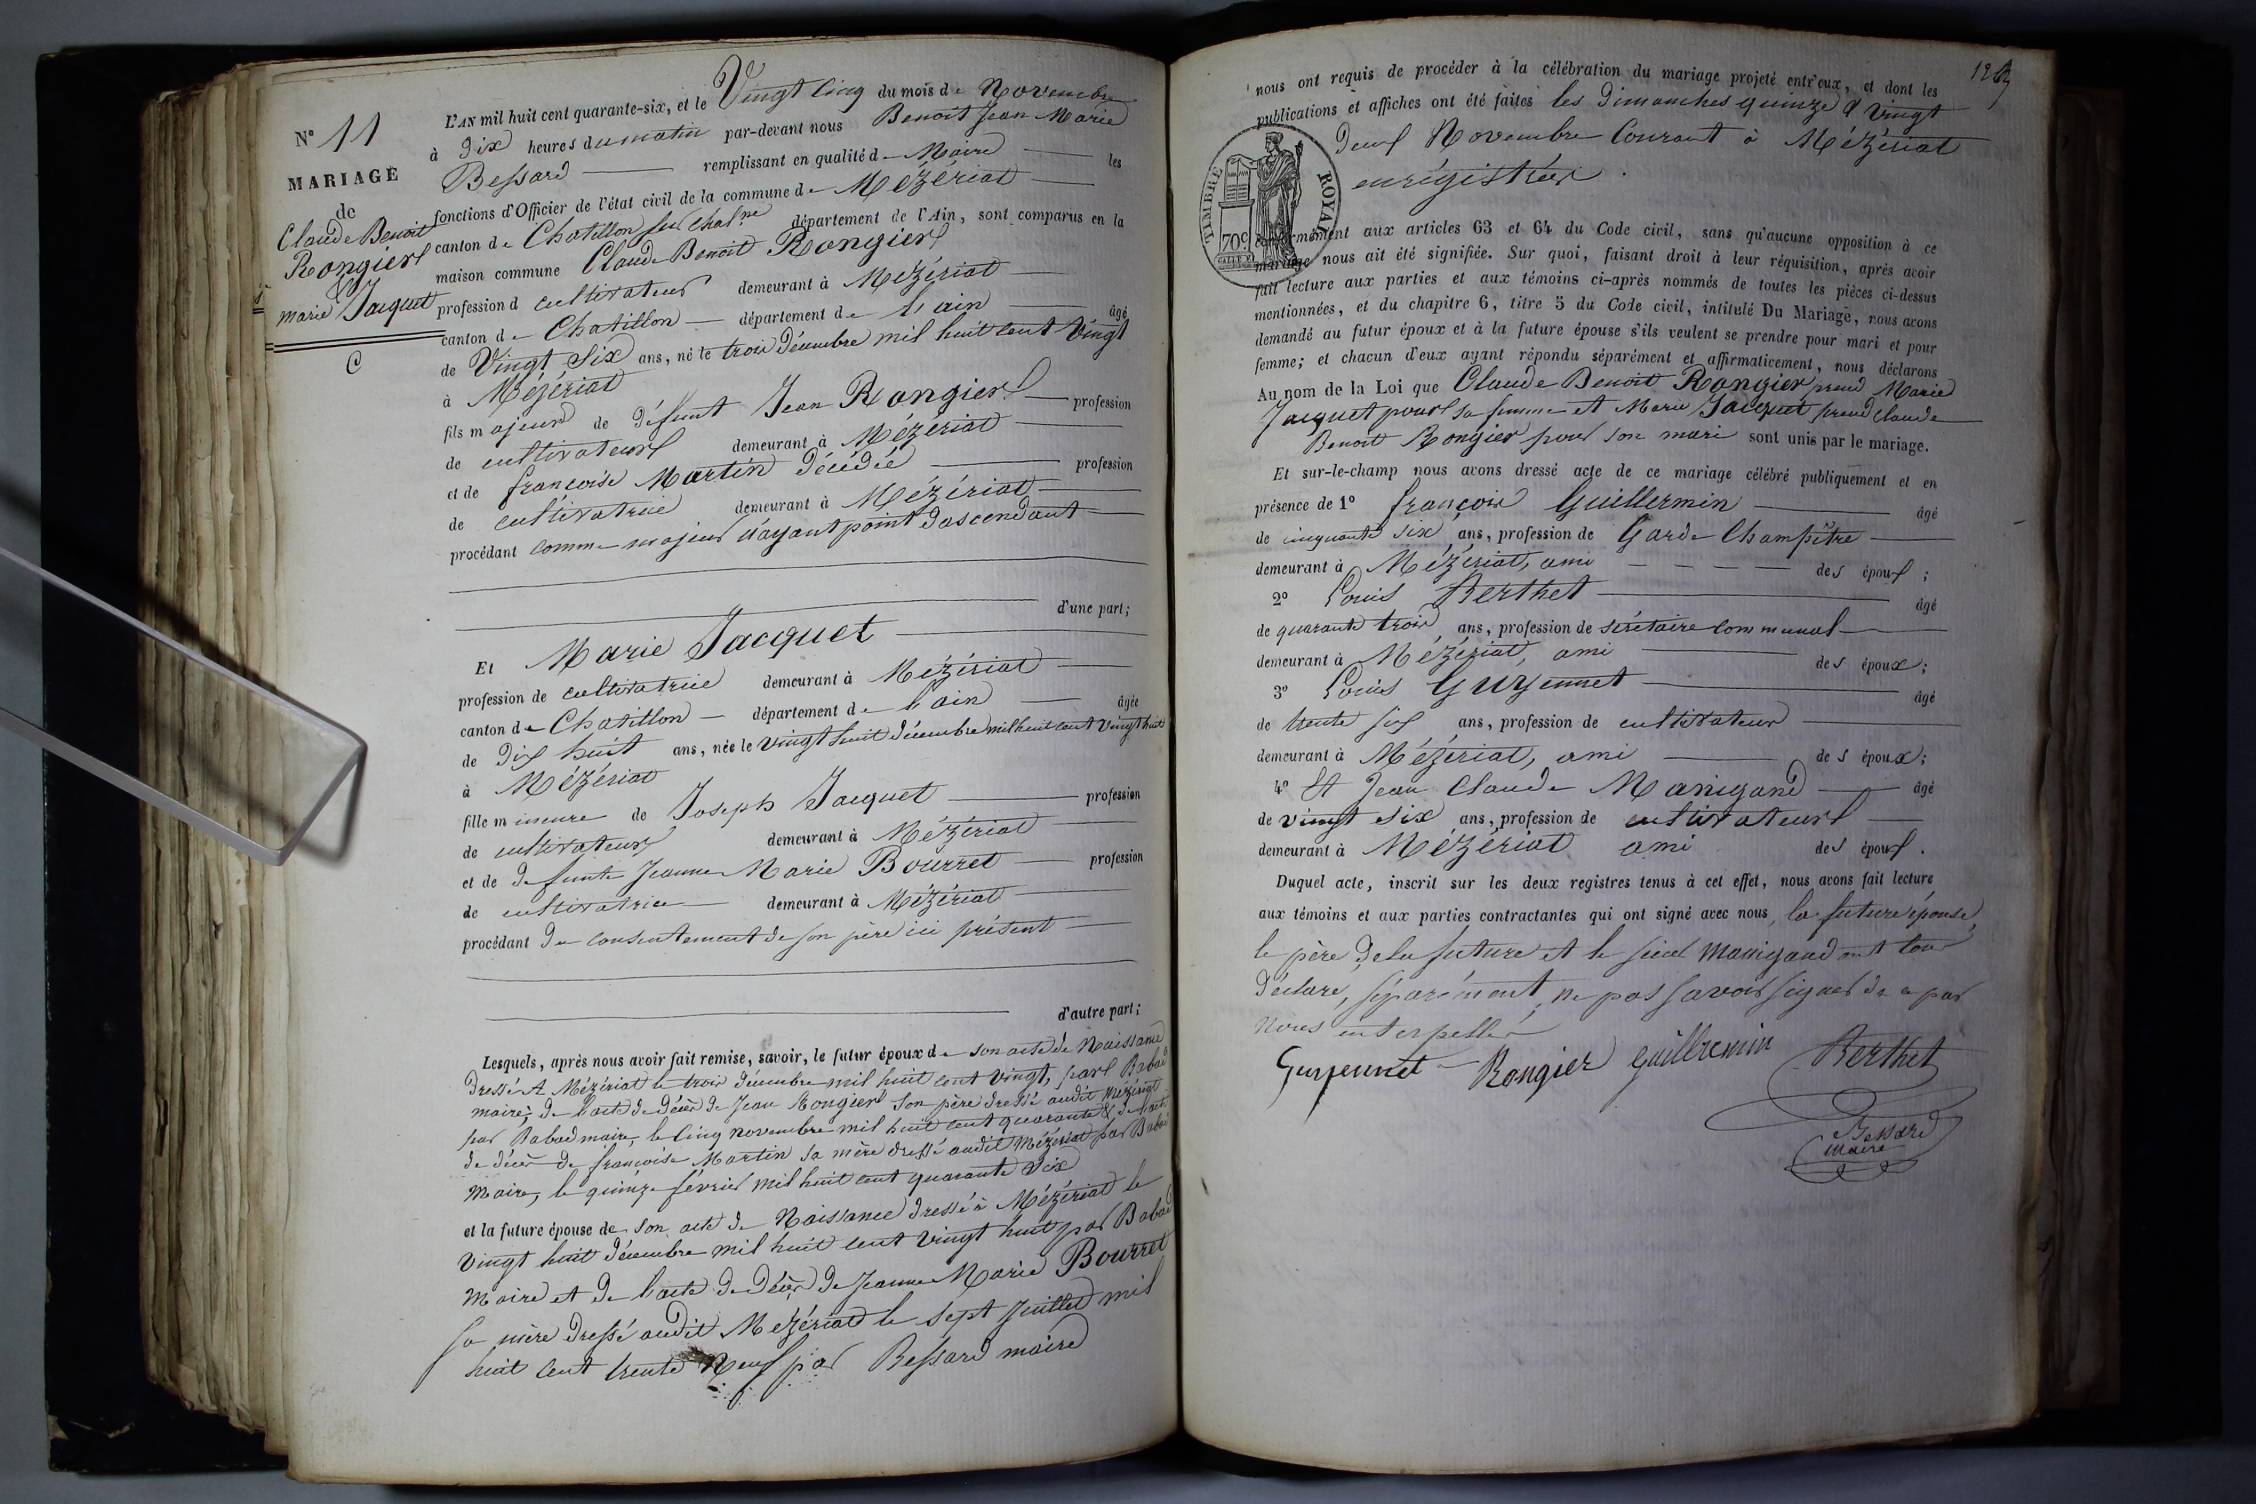 N° 11
MARIAGE
de
Claude Benoit
Rongier
&
marie Jacquet
C
L'AN mil huit cent quarante-six, et le Vingt Cinq du mois de Novembre
à Dix heures du matin par-devant nous Benoit Jean Marie
Bessard remplissant en qualité de Maire les
fonctions d'Officier de l'état civil de la commune de Mézériat
canton de Chatillon sur Chalne département de l'Ain, sont comparus en la
maison commune Claude Benoit Rongier
profession d cultivateur demeurant à Mézériat
canton de Chatillon département de l'ain âgé
de Vingt Six ans, né le trois Décembre mil huit cent Vingt
à Mézériat
fils majeur de Défunt Jean Rongier profession
de cultivateur demeurant à Mézériat
et de françoise Martin Décédée profession
de cultivatrice demeurant à Mézériat
procédant comme majeur n'ayant point d'ascendant
d'une part;
Et Marie Jacquet
profession de cultivatrice demeurant à Mézériat
canton de Chatillon département de l'ain âgée
de Dix huit ans, née le vingt huit Décembre mil huit cent Vingt huit
à Mézériat
fille mineure de Joseph Jacquet profession
de cultivateur demeurant à Mézériat
et de Defunte Jeanne Marie Bourret profession
de cultivatrice demeurant à Mézériat
procédant Du consentement de son père ici présent
d'autre part;
Lesquels, après nous avoir fait remise, savoir, le futur époux de son acte de Naissance
Dressé A Mézériat le trois Décembre mil huit cent Vingt, par Babad
maire; de l'acte de Décès de Jean Rongier son père dressé audit Mézériat
par Babad maire, le Cinq novembre mil huit cent quarante & de l'acte
de décès de françoise Martin sa mère dressé audit Mézériat par Babad
Maire, le quinze février mil huit cent quarante Six
et la future épouse de son acte de Naissance dressé à Mézériat le
Vingt huit Décembre mil huit cent Vingt huit par Babad
Maire et de l'acte de Décès de Jeanne Marie Bourret
sa mère dressé audit Mézériat le sept Juillet mil
huit Cent trente Neuf par Bessard maire
nous ont requis de procéder à la célébration du mariage projeté entr'eux, et dont les
publications et affiches ont été faites les Dimanches quinze & Vingt
Deux Novembre Courant à Mézériat
enrégistrées.
TIMBRE ROYAL
70c
conformément aux articles 63 et 64 du Code civil, sans qu'aucune opposition à ce
mariage nous ait été signifiée. Sur quoi, faisant droit à leur réquisition, après avoir
fait lecture aux parties et aux témoins ci-après nommés de toutes les pièces ci-dessus
mentionnées, et du chapitre 6, titre 5 du Code civil, intitulé Du Mariage, nous avons
demandé au futur époux et à la future épouse s'ils veulent se prendre pour mari et pour
femme; et chacun d'eux ayant répondu séparément et affirmativement, nous déclarons
Au nom de la Loi que Claude Benoit Rongier prend Marie
Jacquet pour sa femme et Marie Jacquet prend Claude
Benoit Rongier pour son mari sont unis par le mariage.
Et sur-le-champ nous avons dressé acte de ce mariage célébré publiquement et en
présence de 1° françois Guillermin âgé
de cinquante six ans, profession de Garde Champêtre
demeurant à Mézériat, ami des époux;
2° Louis Berthet âgé
de quarante trois ans, profession de sécrétaire communal
demeurant à Mézériat, ami des époux;
3° Louis Guyennet âgé
de trente six ans, profession de cultivateur
demeurant à Mézériat, ami des époux;
4° Et Jean Claude Manigand âgé
de vingt six ans, profession de cultivateur
demeurant à Mézériat ami des époux.
Duquel acte, inscrit sur les deux registres tenus à cet effet, nous avons fait lecture
aux témoins et aux parties contractantes qui ont signé avec nous, la future épouse,
le père de la future et le sieur Manigand ont tous
Déclaré, séparément, ne pas savoir signer de ce par
Nous interpellés
Guyennet Rongier Guillermin Berthet
Bessard
maire